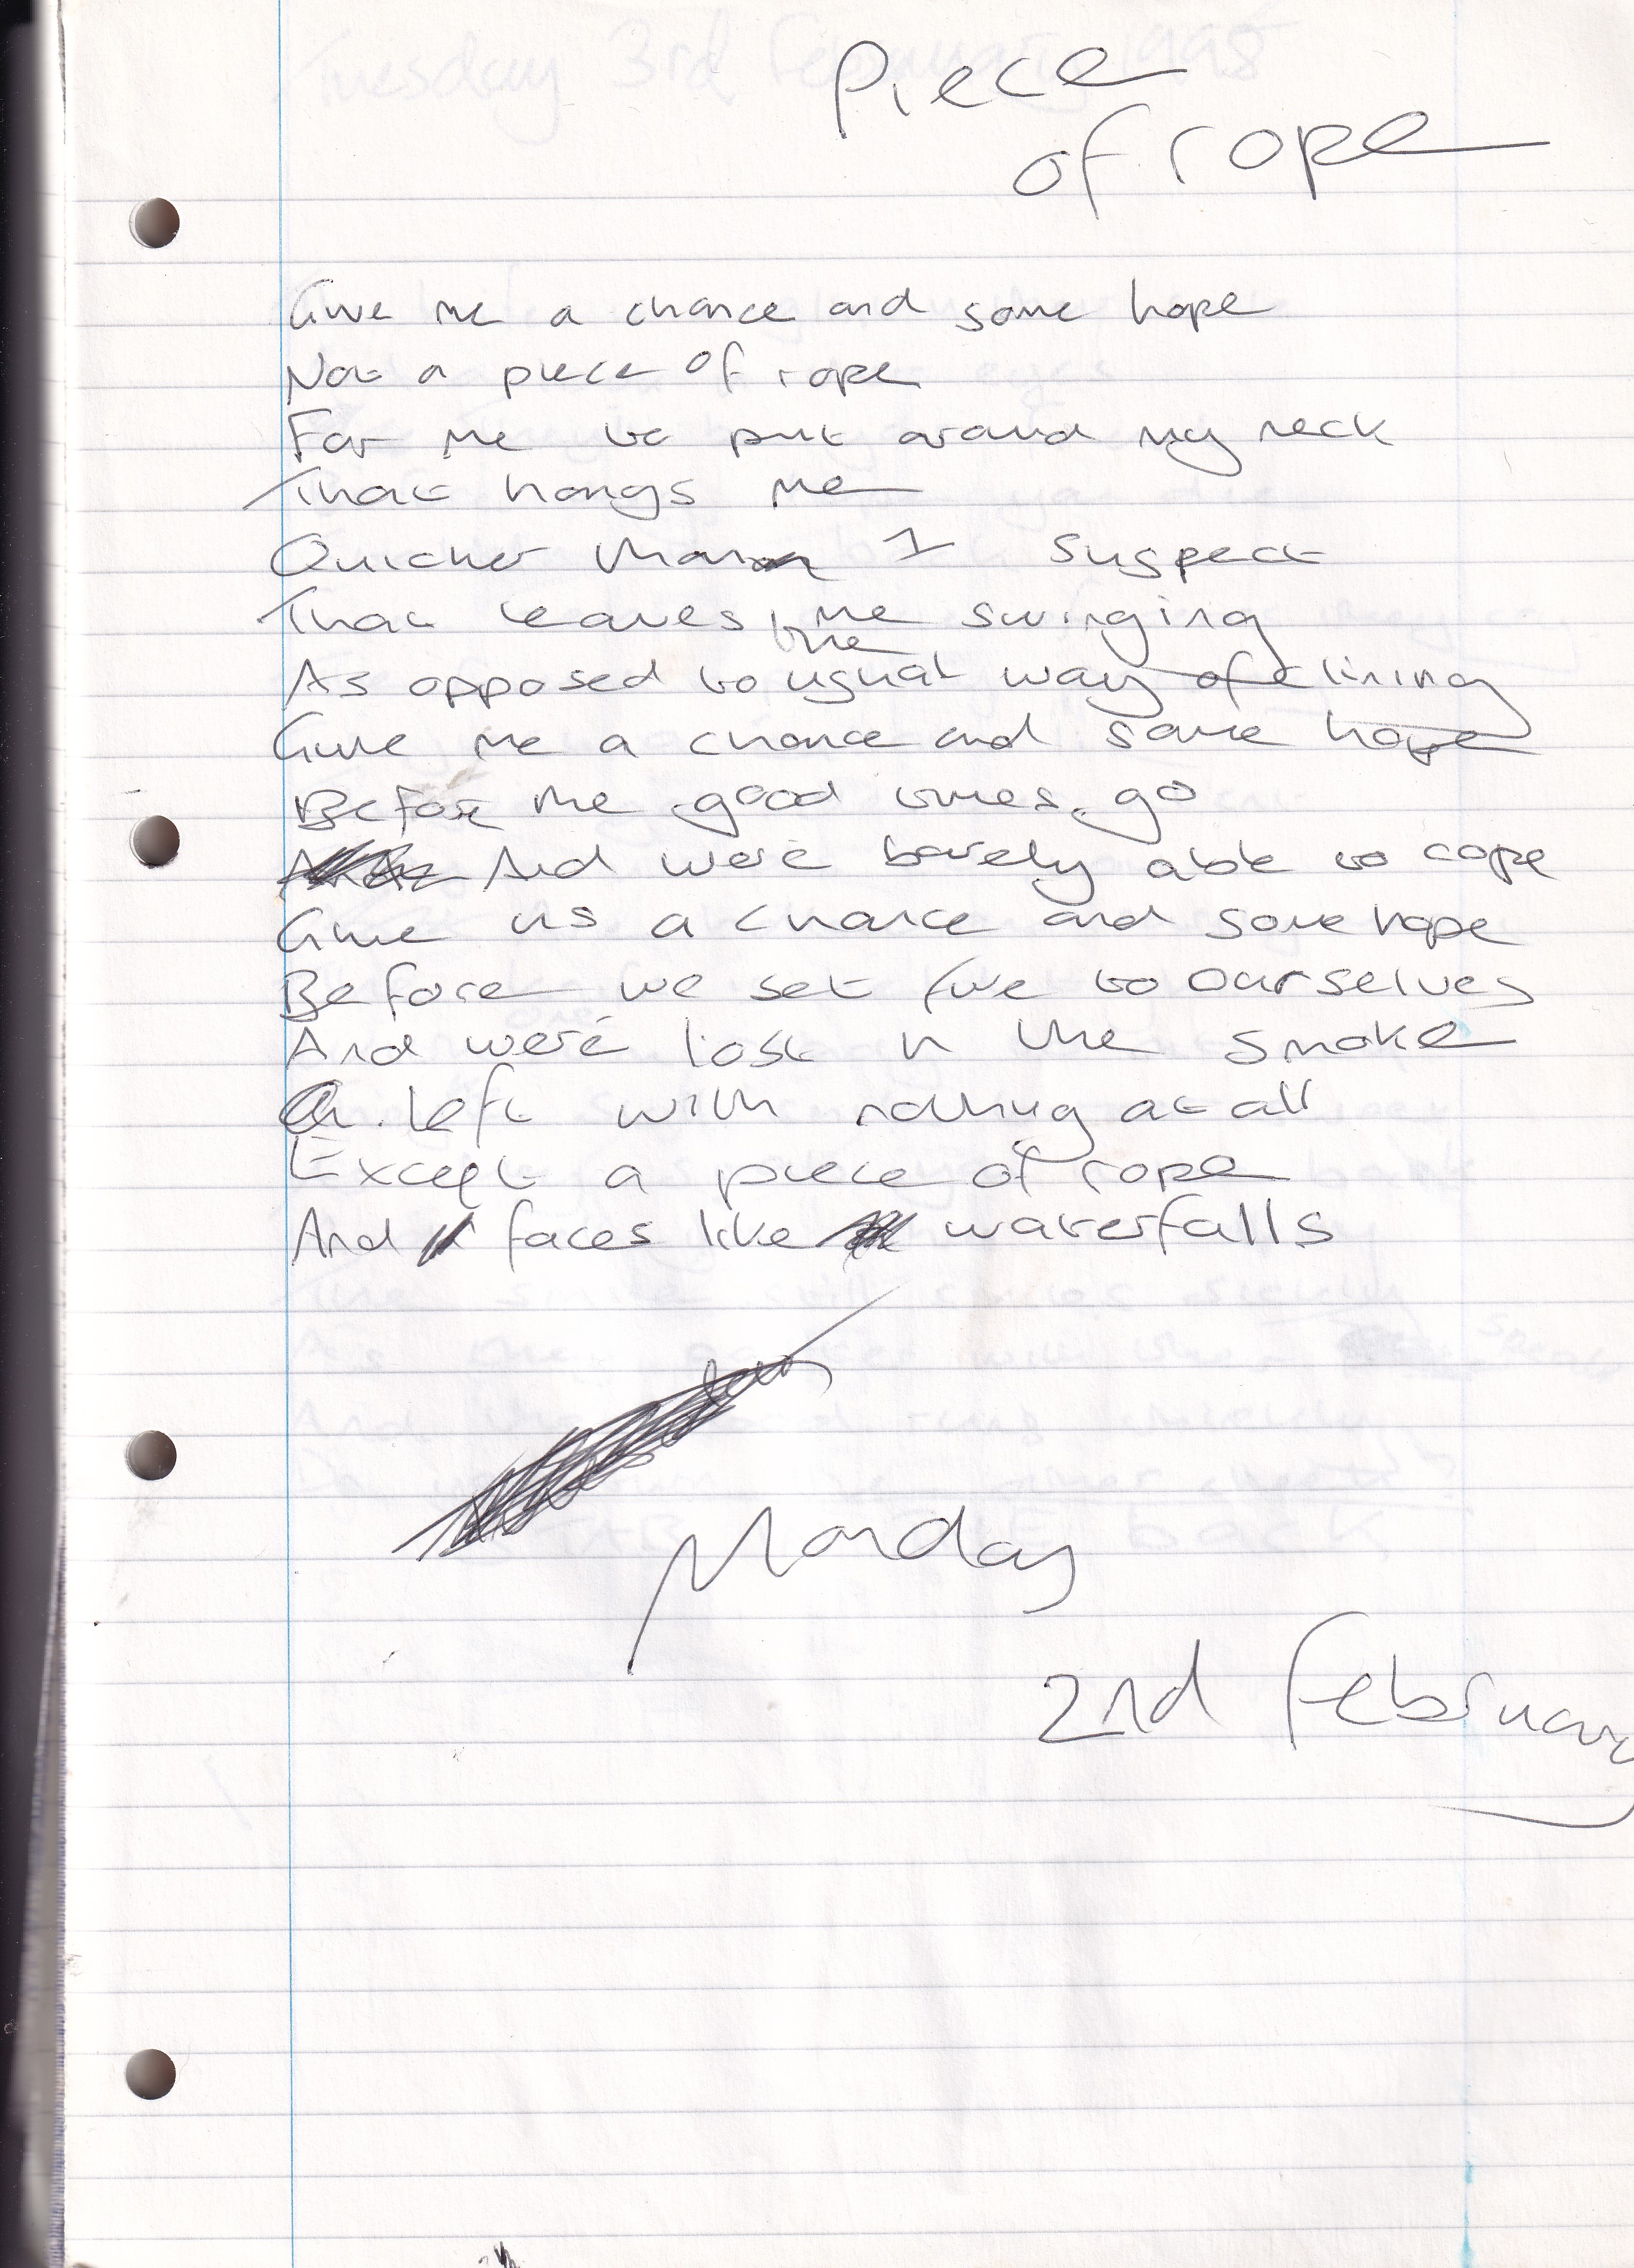 Piece
of rope
Give me a chance and some hope
Not a piece of rope
For me to put around my neck
That hangs me
Quicker than I suspect
That leaves me swinging
As opposed to the usual way of living
Give me a chance and some hope
Before the good times go
And we're barely able to cope
Give us a chance and some hope
Before we set fire to ourselves
And we're lost in the smoke
Or left with nothing at all
Except a piece of rope
And faces like waterfalls
Monday
2nd February